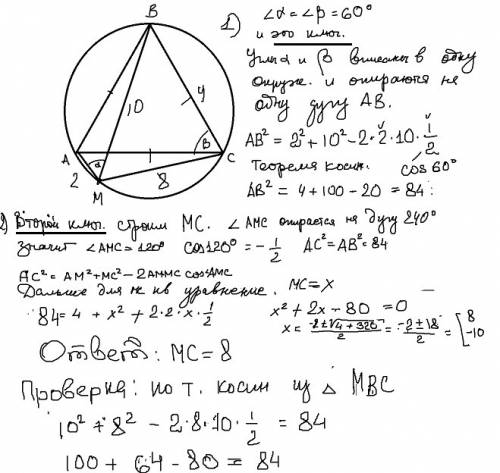 B
10
y
A
β
C
α
2
8
M
1) ∠α = ∠β = 60°
и это ключ.
Углы α и β вписаны в одну
окруж. и опираются на
одну дугу AB.
AB² = 2² + 10² - 2·2·10·1/2
Теорема косин. cos 60°
AB² = 4 + 100 - 20 = 84
2) Второй ключ. строим MC. ∠AMC опирается на дугу 240°
Значит ∠AMC = 120° cos120° = -1/2 AC² = AB² = 84
AC² = AM² + MC² - 2AMMC cosAMC
Дальше для кв уравнение. MC = x
84 = 4 + x² + 2·2·x·1/2 x² + 2x - 80 = 0
x = (-2±√4+320)/2 = (-2±18)/2 = [8 -10
Ответ: MC = 8
Проверка: по т. косин из △ MBC
10² + 8² - 2·8·10·1/2 = 84
100 + 64 - 80 = 84